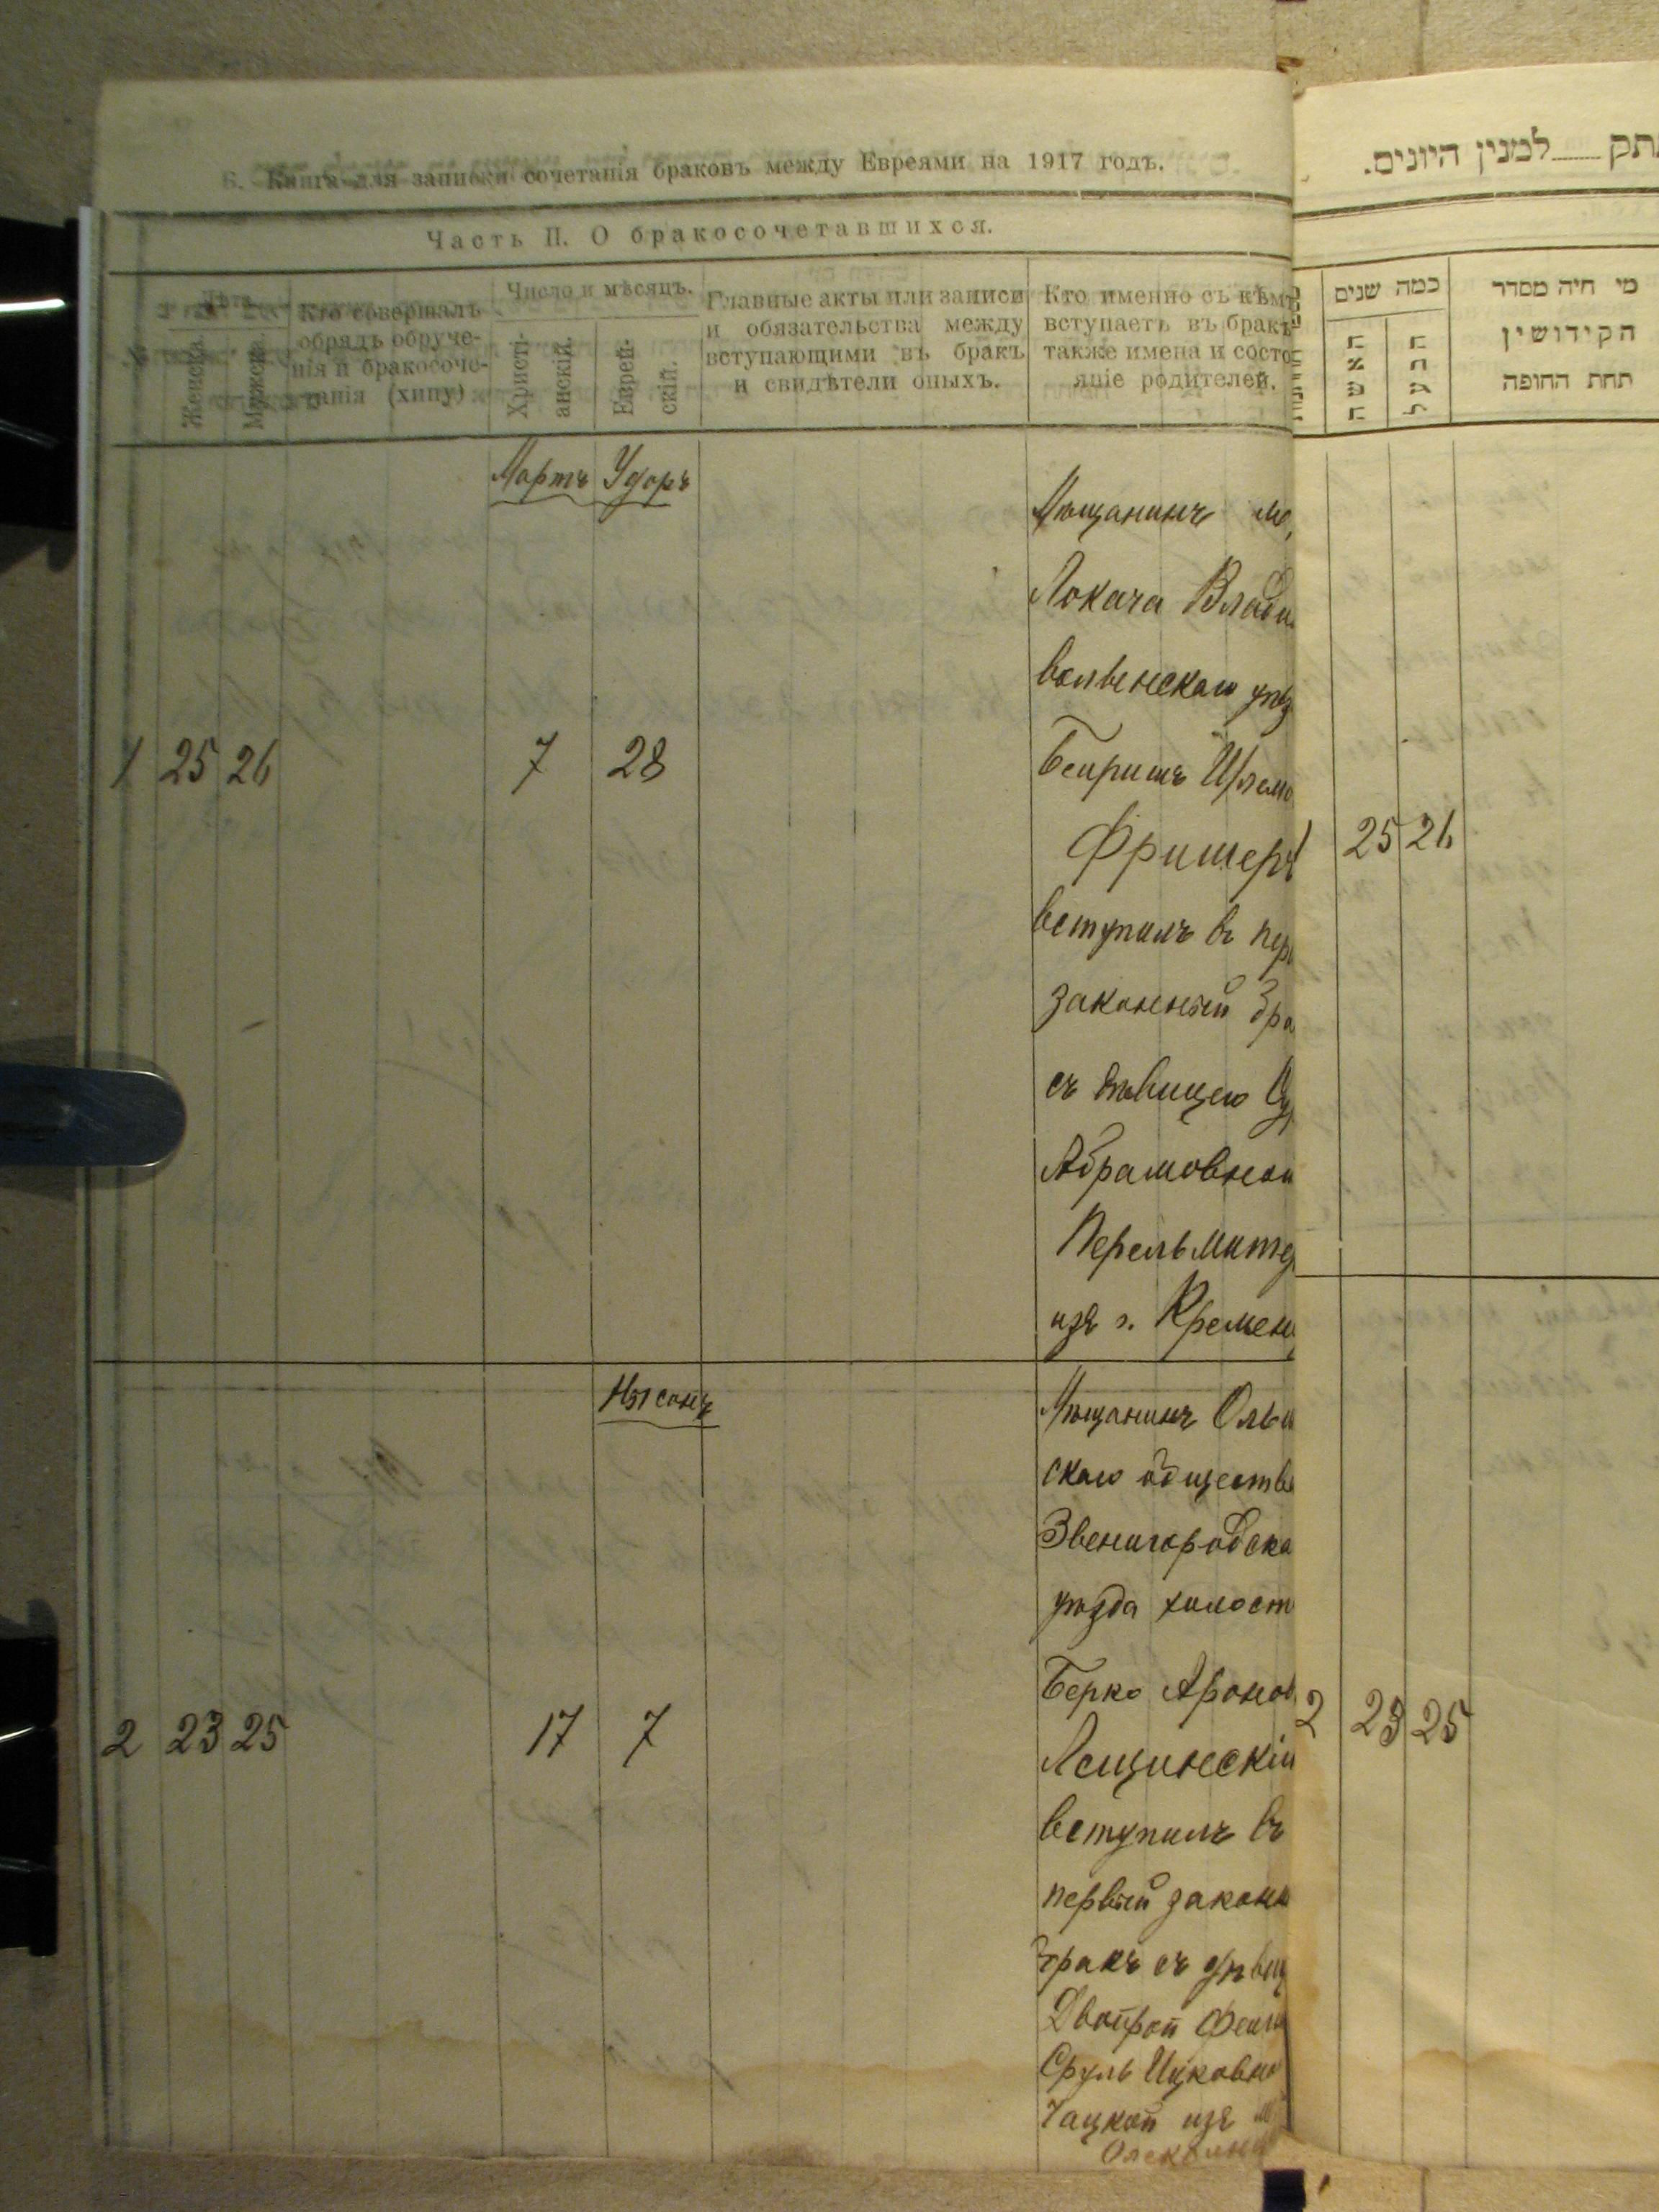 6. Книга для записки сочетанія браковъ между Евреями на 1917 годъ.
Часть II. О бракосочетавшихся.
Лѣта
Женска.
Мужска.
Кто совершалъ
обрядъ обруче-
нія и бракосоче-
танія (хипу)
Число и мѣсяцъ.
Христі-
анскій.
Еврей-
скій.
Главные акты или записи
и обязательства между
вступающими въ бракъ
и свидѣтели оныхъ.
Кто именно съ кѣмъ
вступаетъ въ бракъ
также имена и состо
яніе родителей.
Мартъ Удоръ
1 25 26 7 28
Мѣщанинъ м,
Локача Влади
волынскаго уѣз
Бейришъ Шлемо
Фришеръ
вступилъ въ пер
законный бра
съ дѣвицею
Абрамовной
Перельмите
изъ г. Кремен
Нисонъ
2 23 25 17 7
Мѣщанинъ Ольш
скаго обществ
Звенигородска
уѣзда холост
Берко Аронов
Лещинскій
вступилъ въ
первый законн
бракъ съ дѣвиц
Двойрой Фейги
Сруль Ицковно
Чацкой изъ м
למנין היונים.
כמה שנים
האשה
הבעל
מי היה מסדר
הקידושין
תחת החופה
1 25 26
2 23 25